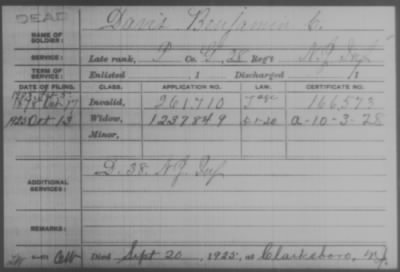 DEAD
NAME OF SOLDIER: Davis Benjamin C.
SERVICE: Late rank, P Co. G, 38 Reg't N.J. Inf.
TERM OF SERVICE: Enlisted , 1 Discharged , 1
DATE OF FILING. CLASS. APPLICATION NO. LAW. CERTIFICATE NO.
Invalid, 261710 166,573
1925 Oct 13 Widow, 1237849 5-1-20 a-10-3-28
Minor,
ADDITIONAL SERVICES: D. 38. N.J. Inf
REMARKS:
Died Sept 20, 1925, at Clarksboro, N.J.